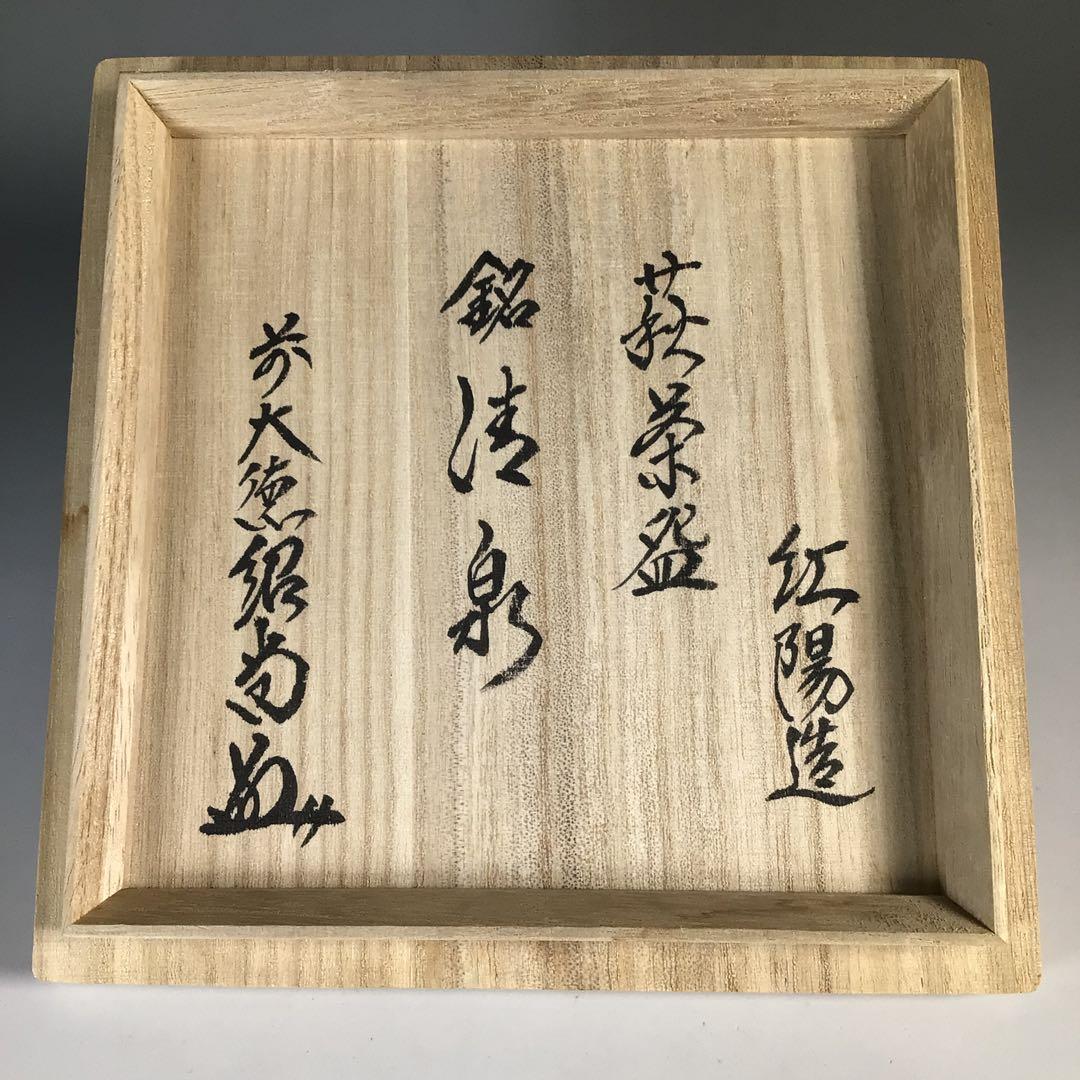 紅陽造
萩茶盌
銘清泉
前大徳紹尚